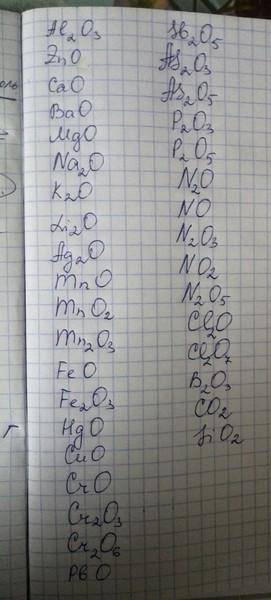 Al2O3
ZnO
CaO
BaO
MgO
Na2O
K2O
Li2O
Ag2O
MnO
MnO2
Mn2O3
FeO
Fe2O3
HgO
CuO
CrO
Cr2O3
Cr2O6
PbO
Sb2O5
As2O3
As2O5
P2O3
P2O5
N2O
NO
N2O3
NO2
N2O5
Cl2O
Cl2O7
B2O3
CO2
SiO2